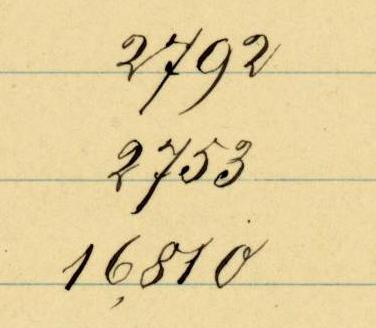 2792
2753
16,810